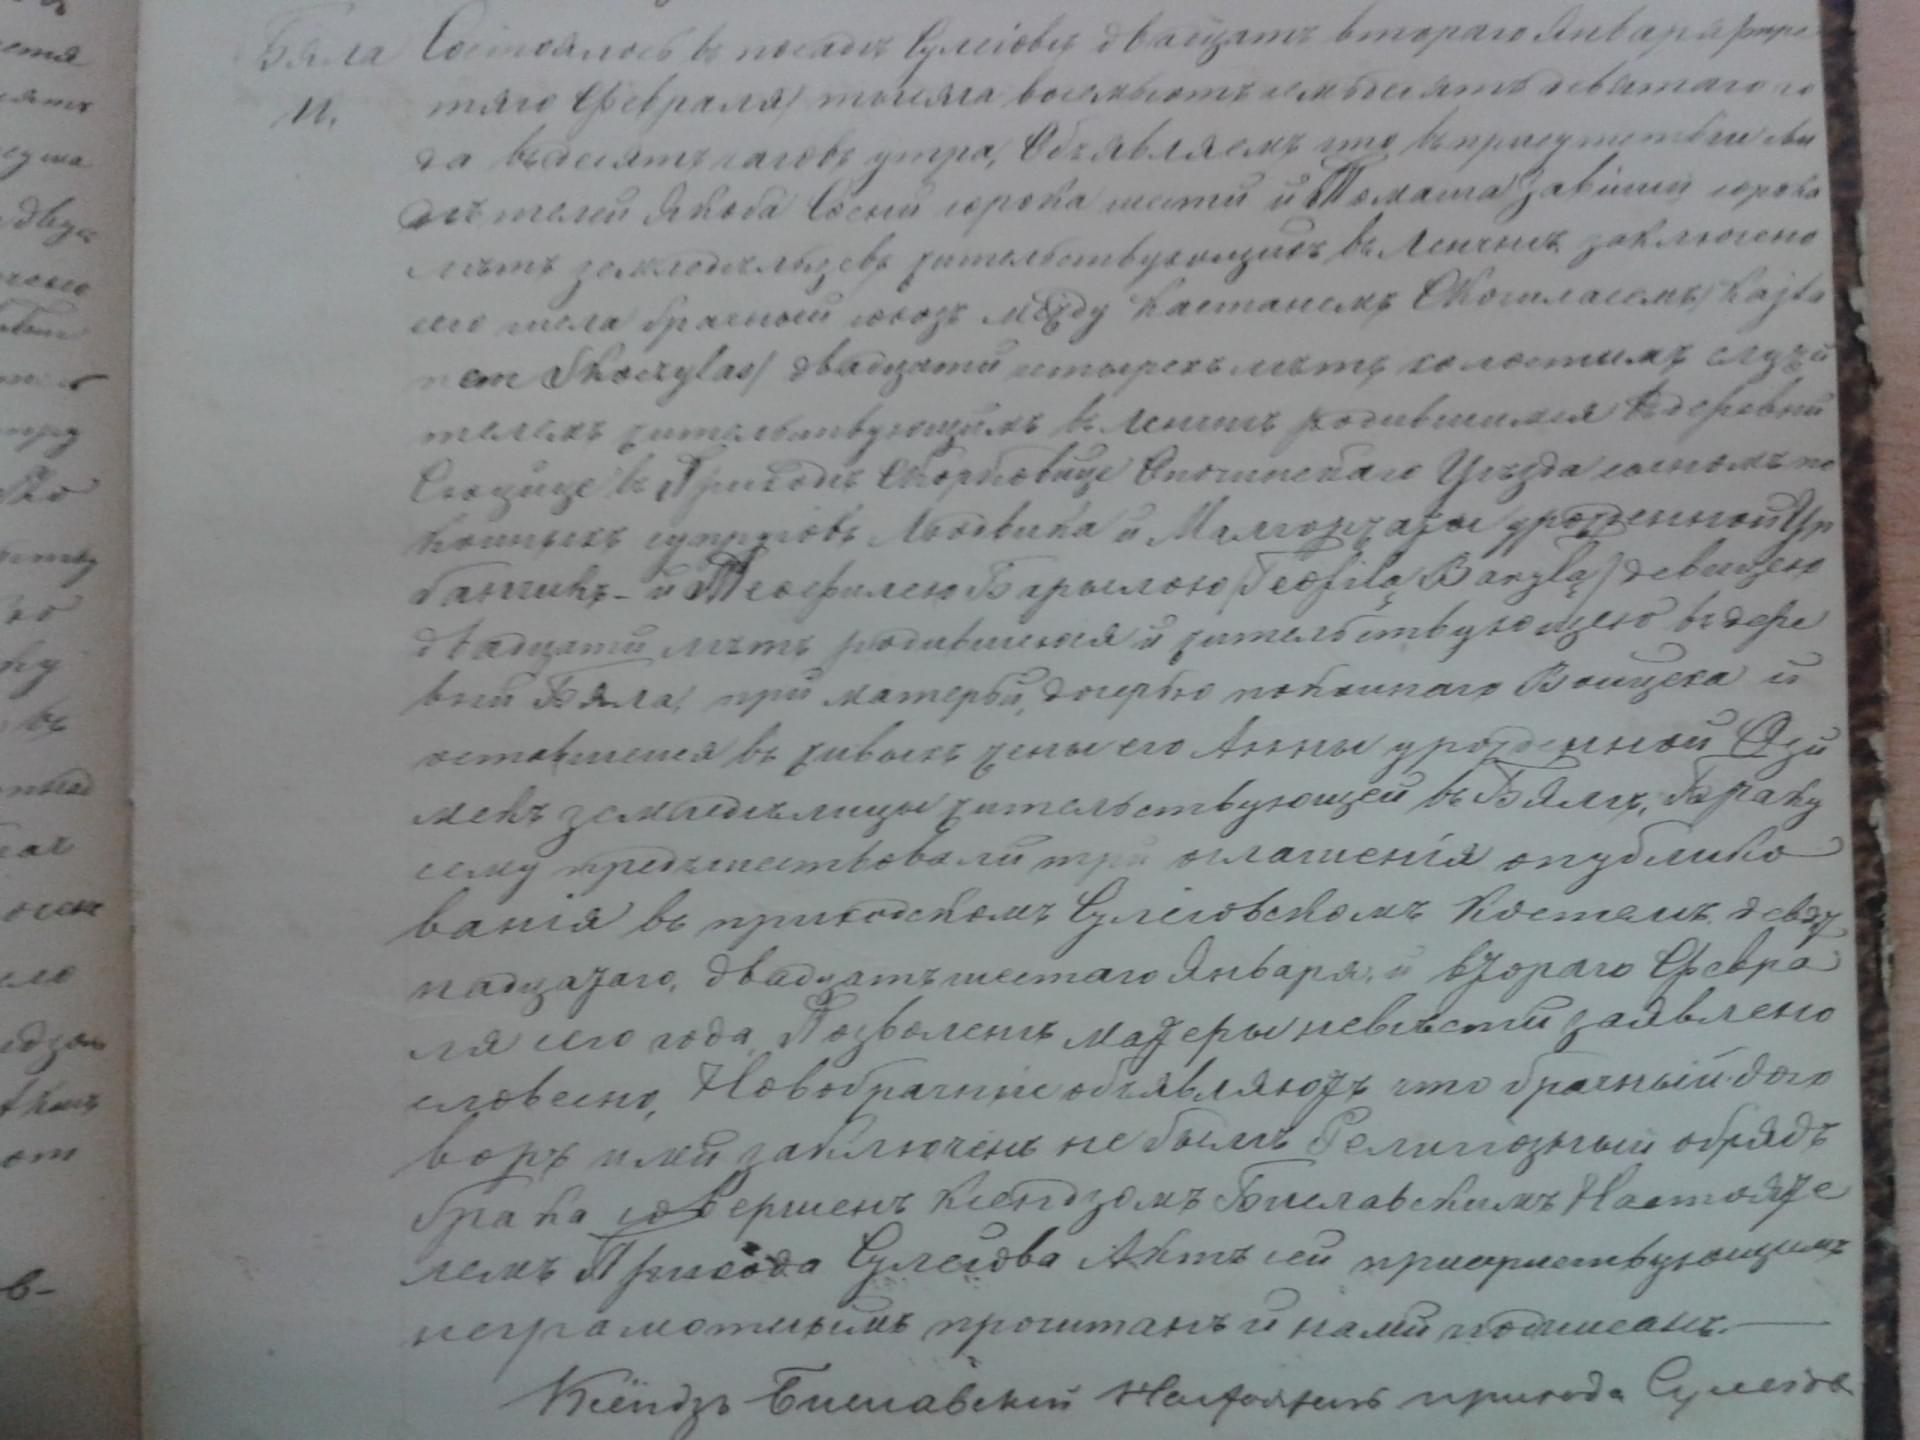 Бяла
11.
Состоялось въ посадѣ Сулеіовѣ двадцать втораго Января /тре
тяго Февраля/ тысяча восемьсотъ семьдесятъ девятаго го
да въ десять часовъ утра, Объявляемъ что въ присутствіи сви
дѣтелей Якоба Сосни сорока шести и Томаша сорока
лѣтъ земледѣльцевъ жительствующихъ въ Ленчнѣ заключено
сего числа брачный союзъ между Каетанемъ Скочиласемъ /Kajta
nem Skoczylas/ двадцати четырехъ лѣтъ холостымъ служи
телемъ жительствующимъ въ Ленчнѣ родившимся въ деревни
въ Приходѣ Скорковице Опочинскаго Уѣзда сыномъ по
койныхъ супруговъ Людвика и Малгоржаты урожденной Ур
банчикъ - и Теофилею Барылою /Teofilą Baryłą/ девицею
двадцати лѣтъ родившеюся и жительствующею въ дере
вни Бяла, при матерѣи, дочерью покойнаго Войцеха и
оставшейся въ живыхъ жены его Анны урожденной
земледѣлицы жительствующей въ Бялѣ, Браку
сему предшествовали три оглашенія опублико
ванія въ приходскомъ Сулеіовскомъ Костелѣ девят
надцатаго, двадцать шестаго Января, и втораго Февра
ля сего года Позволенъ матеры невѣсти заявлено
словесно, Новобрачніе объявляютъ что брачный дого
воръ ими заключенъ не былъ Религіозный обрядъ
брака совершенъ Ксендзомъ Настояте
лемъ Прихода Сулеіова Актъ сей присуствующимъ
неграмотнымъ прочитанъ и нами подписанъ.
Ксёндзъ Настоятель прихода Сулеіов